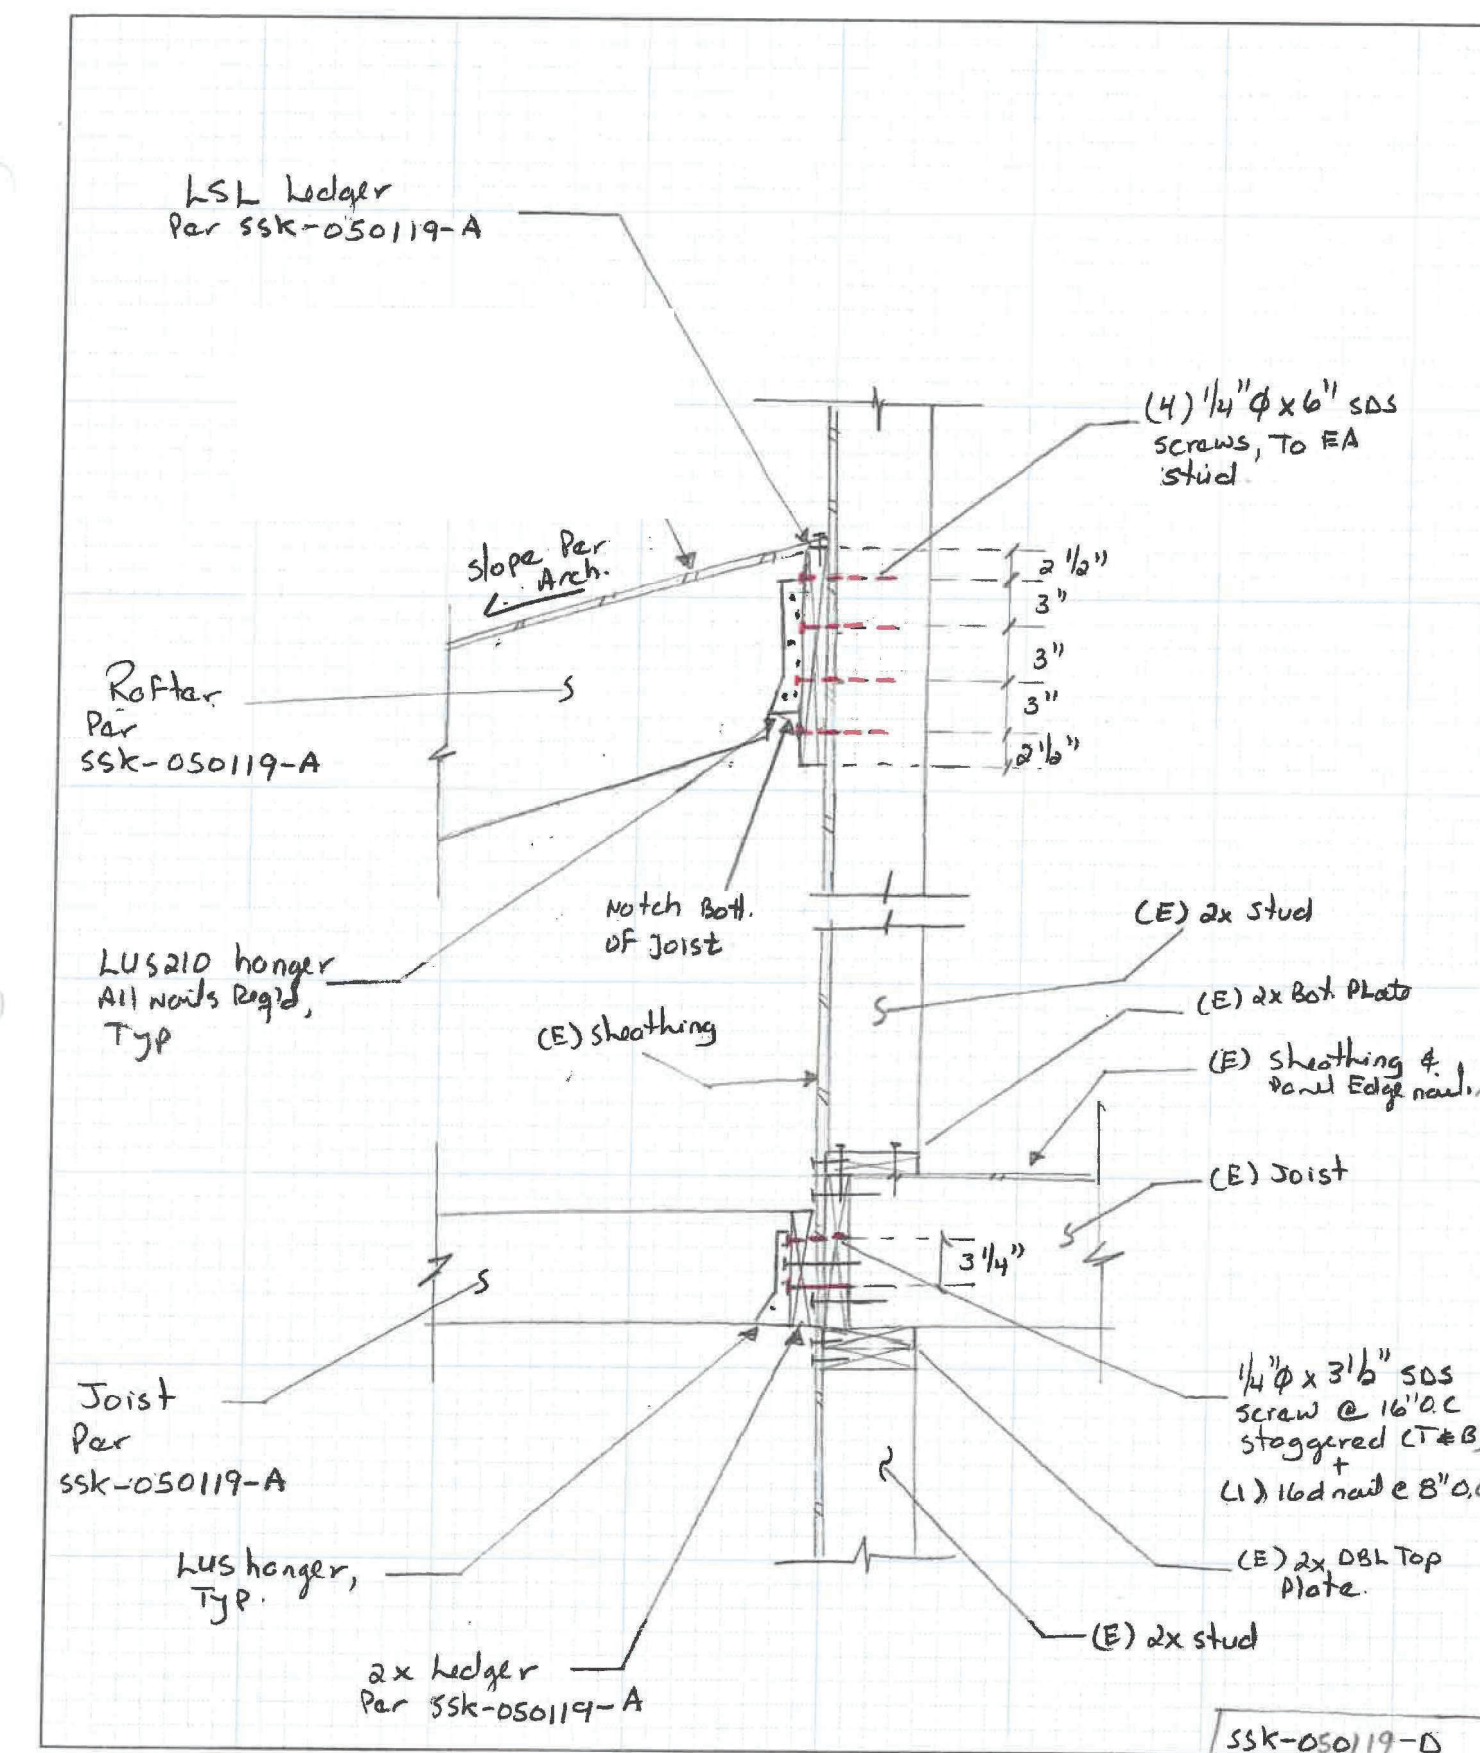 LSL Ledger
Per SSK-050119-A
(4) 1/4"φ x 6" SDS
screws, To EA
stud
2 1/2"
3"
3"
3"
2 1/2"
slope Per
Arch.
Rafter
Per
SSK-050119-A
Notch Bott.
OF Joist
LUS210 hanger
All nails Req'd,
Typ
(E) sheathing
(E) 2x stud
(E) 2x Bot. Plate
(E) sheathing &
Panel Edge nail.
(E) Joist
3 1/4"
Joist
Per
SSK-050119-A
1/4"φ x 3 1/2" SDS
screw @ 16" O.C
staggered (T&B)
+
(1) 16d nail @ 8" O.C
LUS hanger,
Typ.
(E) 2x DBL Top
Plate.
(E) 2x stud
2x Ledger
Per SSK-050119-A
SSK-050119-D